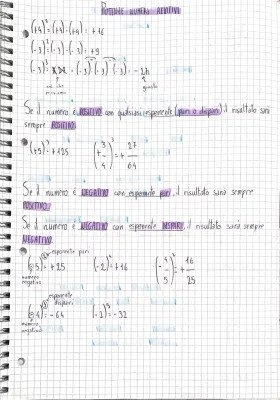 POTENZE NUMERI RELATIVI
(+4)² = (+4)·(+4) = +16
(-3)² = (-3)·(-3) = +9
(-3)³ = (-3)·(-3)·(-3) = -27
Se il numero è POSITIVO con qualsiasi esponente (pari o dispari), il risultato sarà
sempre POSITIVO.
(+5)³ = +125 (+3/4)³ = +27/64
Se il numero è NEGATIVO con esponente pari, il risultato sarà sempre
POSITIVO.
Se il numero è NEGATIVO con esponente DISPARI, il risultato sarà sempre
NEGATIVO.
esponente pari
(-5)² = +25 (-2)⁴ = +16 (-4/5)² = +16/25
numero
negativo
esponente
dispari
(-4)³ = -64 (-2)⁵ = -32
numero
negativo